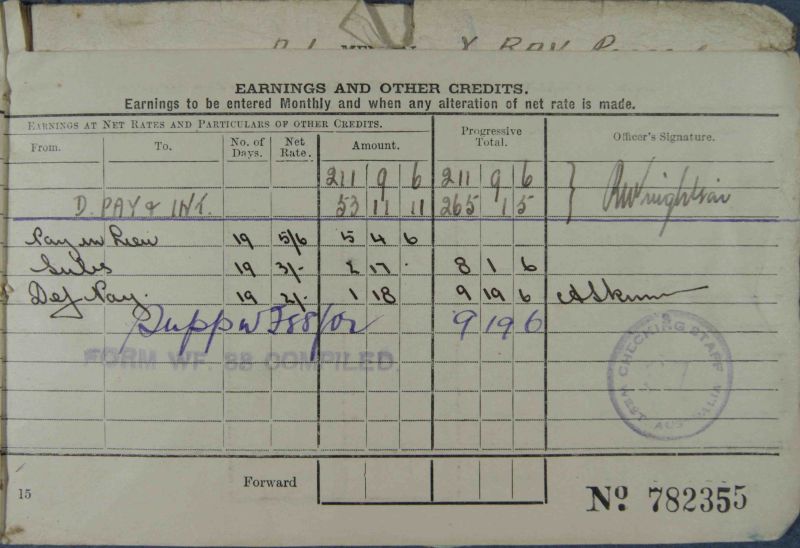 X RAY
EARNINGS AND OTHER CREDITS.
Earnings to be entered Monthly and when any alteration of net rate is made.
EARNINGS AT NET RATES AND PARTICULARS OF OTHER CREDITS.
From. To. No. of Days. Net Rate. Amount. Progressive Total. Officer's Signature.
211 9 6 211 9 6
D. PAY & INT. 53 11 11 265 1 5
Pay in Lieu 19 5/6 5 4 6
Subs 19 3/- 2 17 . 8 1 6
Def Pay. 19 2/- 1 18 9 19 6
9 19 6
FORM WF. 88 COMPILED.
CHECKING STAFF
WEST AUSTRALIA
15 Forward Nº 782355